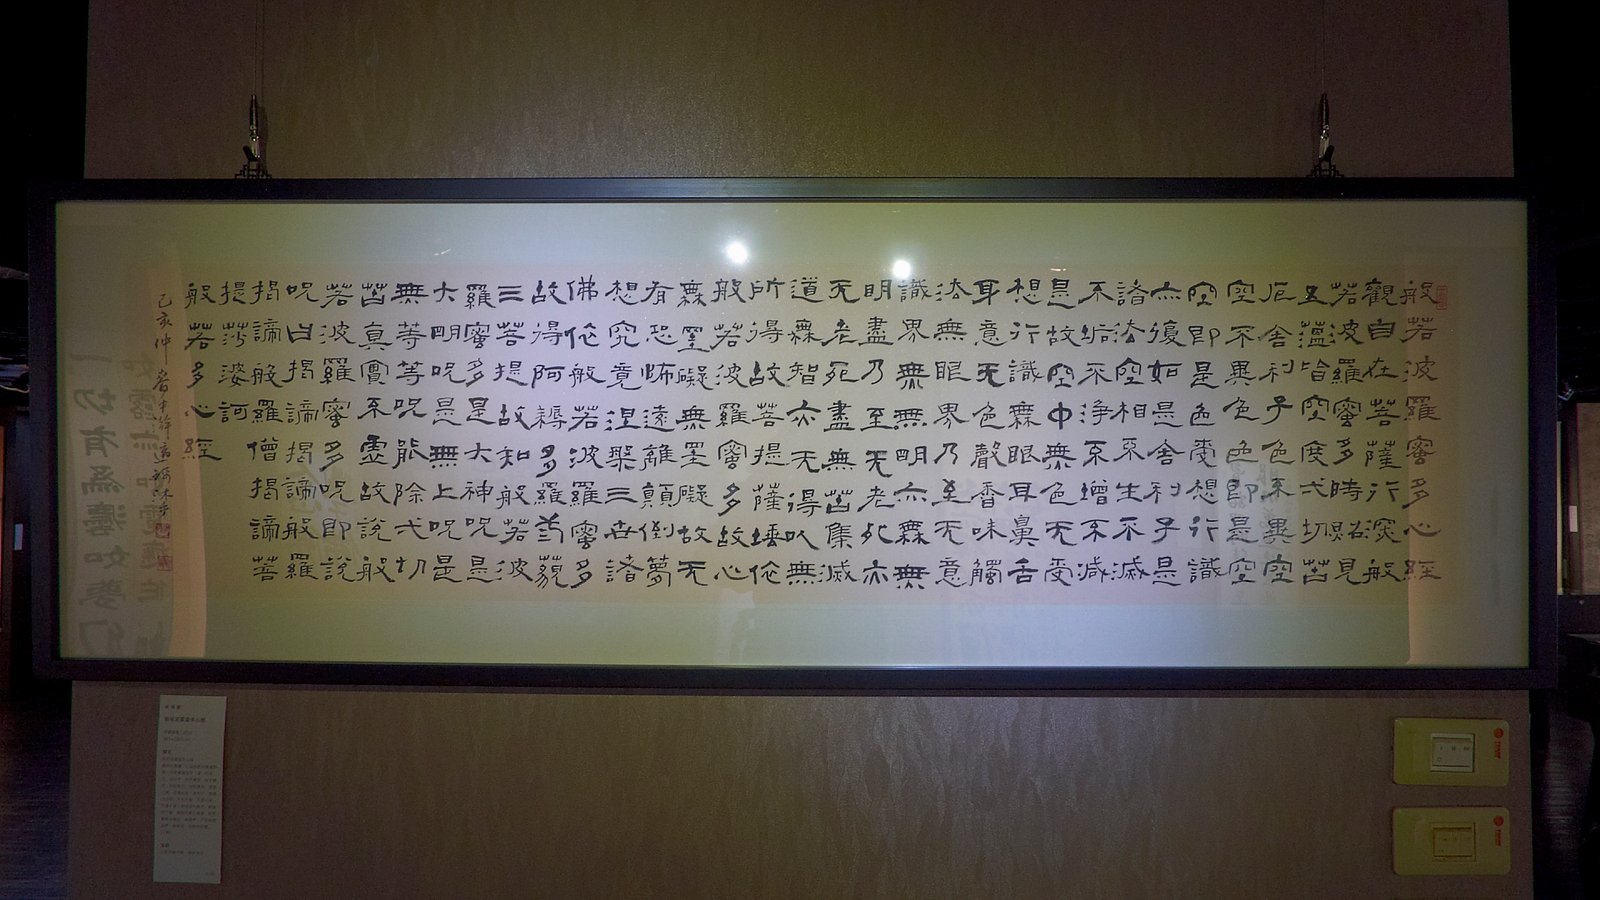 般若波羅蜜多心經
觀自在菩薩行深般
若波羅蜜多時照見
五蘊皆空度弌切苦
厄舍利子色不異空
空不異色色即是空
空即是色受想行識
亦復如是舍利子是
諸法空相不生不滅
不垢不淨不增不減
是故空中無色无受
想行識無眼耳鼻舌
身意无色聲香味觸
法無眼界乃至无意
識界無無明亦無無
明盡乃至无老死亦
无老死盡無苦集滅
道無智亦无得以無
所得故菩提薩埵依
般若波羅蜜多故心
無罣礙無罣礙故无
有恐怖遠離顛倒夢
想究竟涅槃三世諸
佛依般若波羅蜜多
故得阿耨多羅弎藐
三菩提故知般若波
羅蜜多是大神咒是
大明咒是無上咒是
無等等咒能除弌切
苦真實不虛故說般
若波羅蜜多咒即說
咒曰揭諦揭諦般羅
揭諦般羅僧揭諦菩
提莎婆訶
般若多心經
己亥仲春